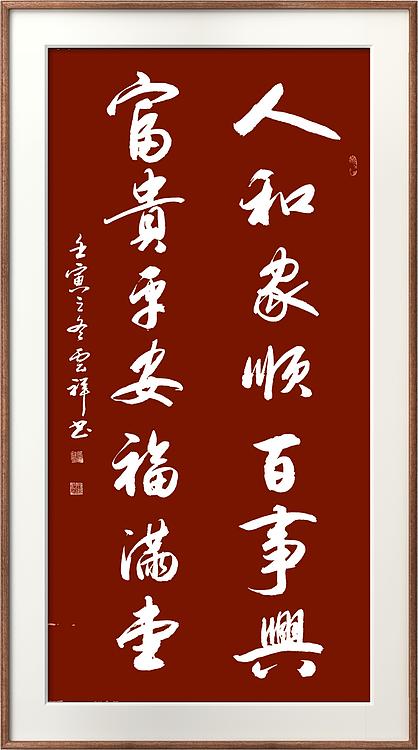 人和家順百事興
富貴平安福滿堂
壬寅之冬雲祥书